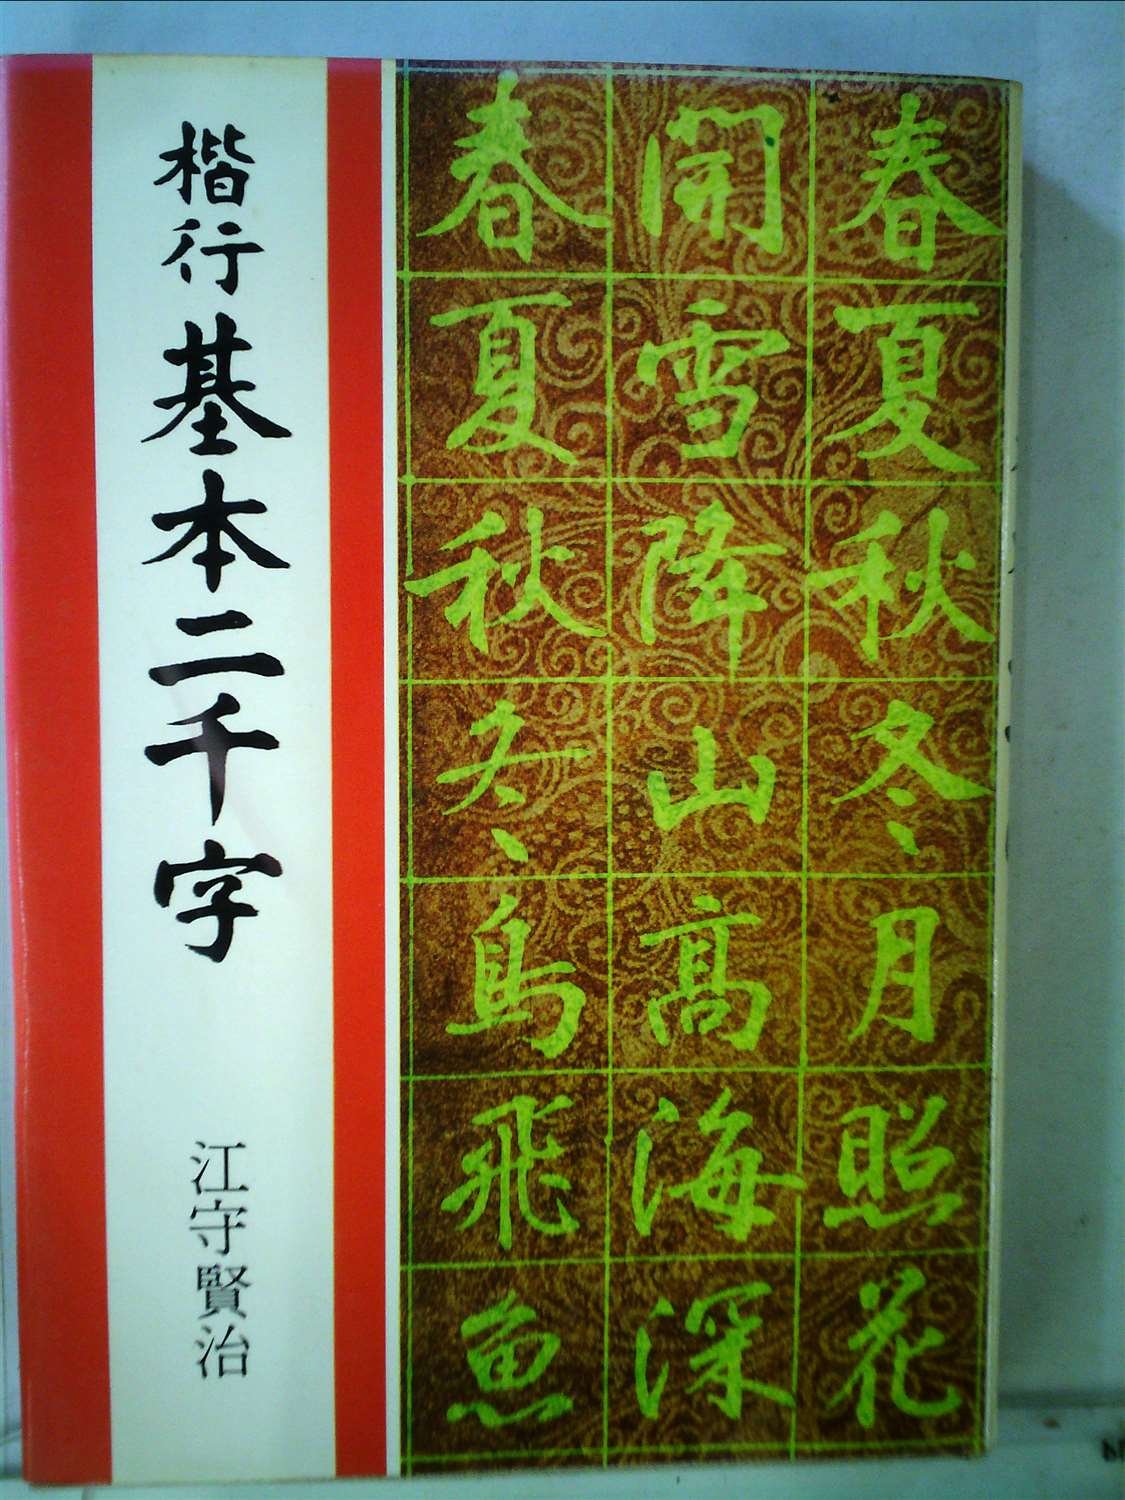 春夏秋冬月照花
開雪降山高海深
春夏秋冬鳥飛魚
楷行基本二千字
江守賢治